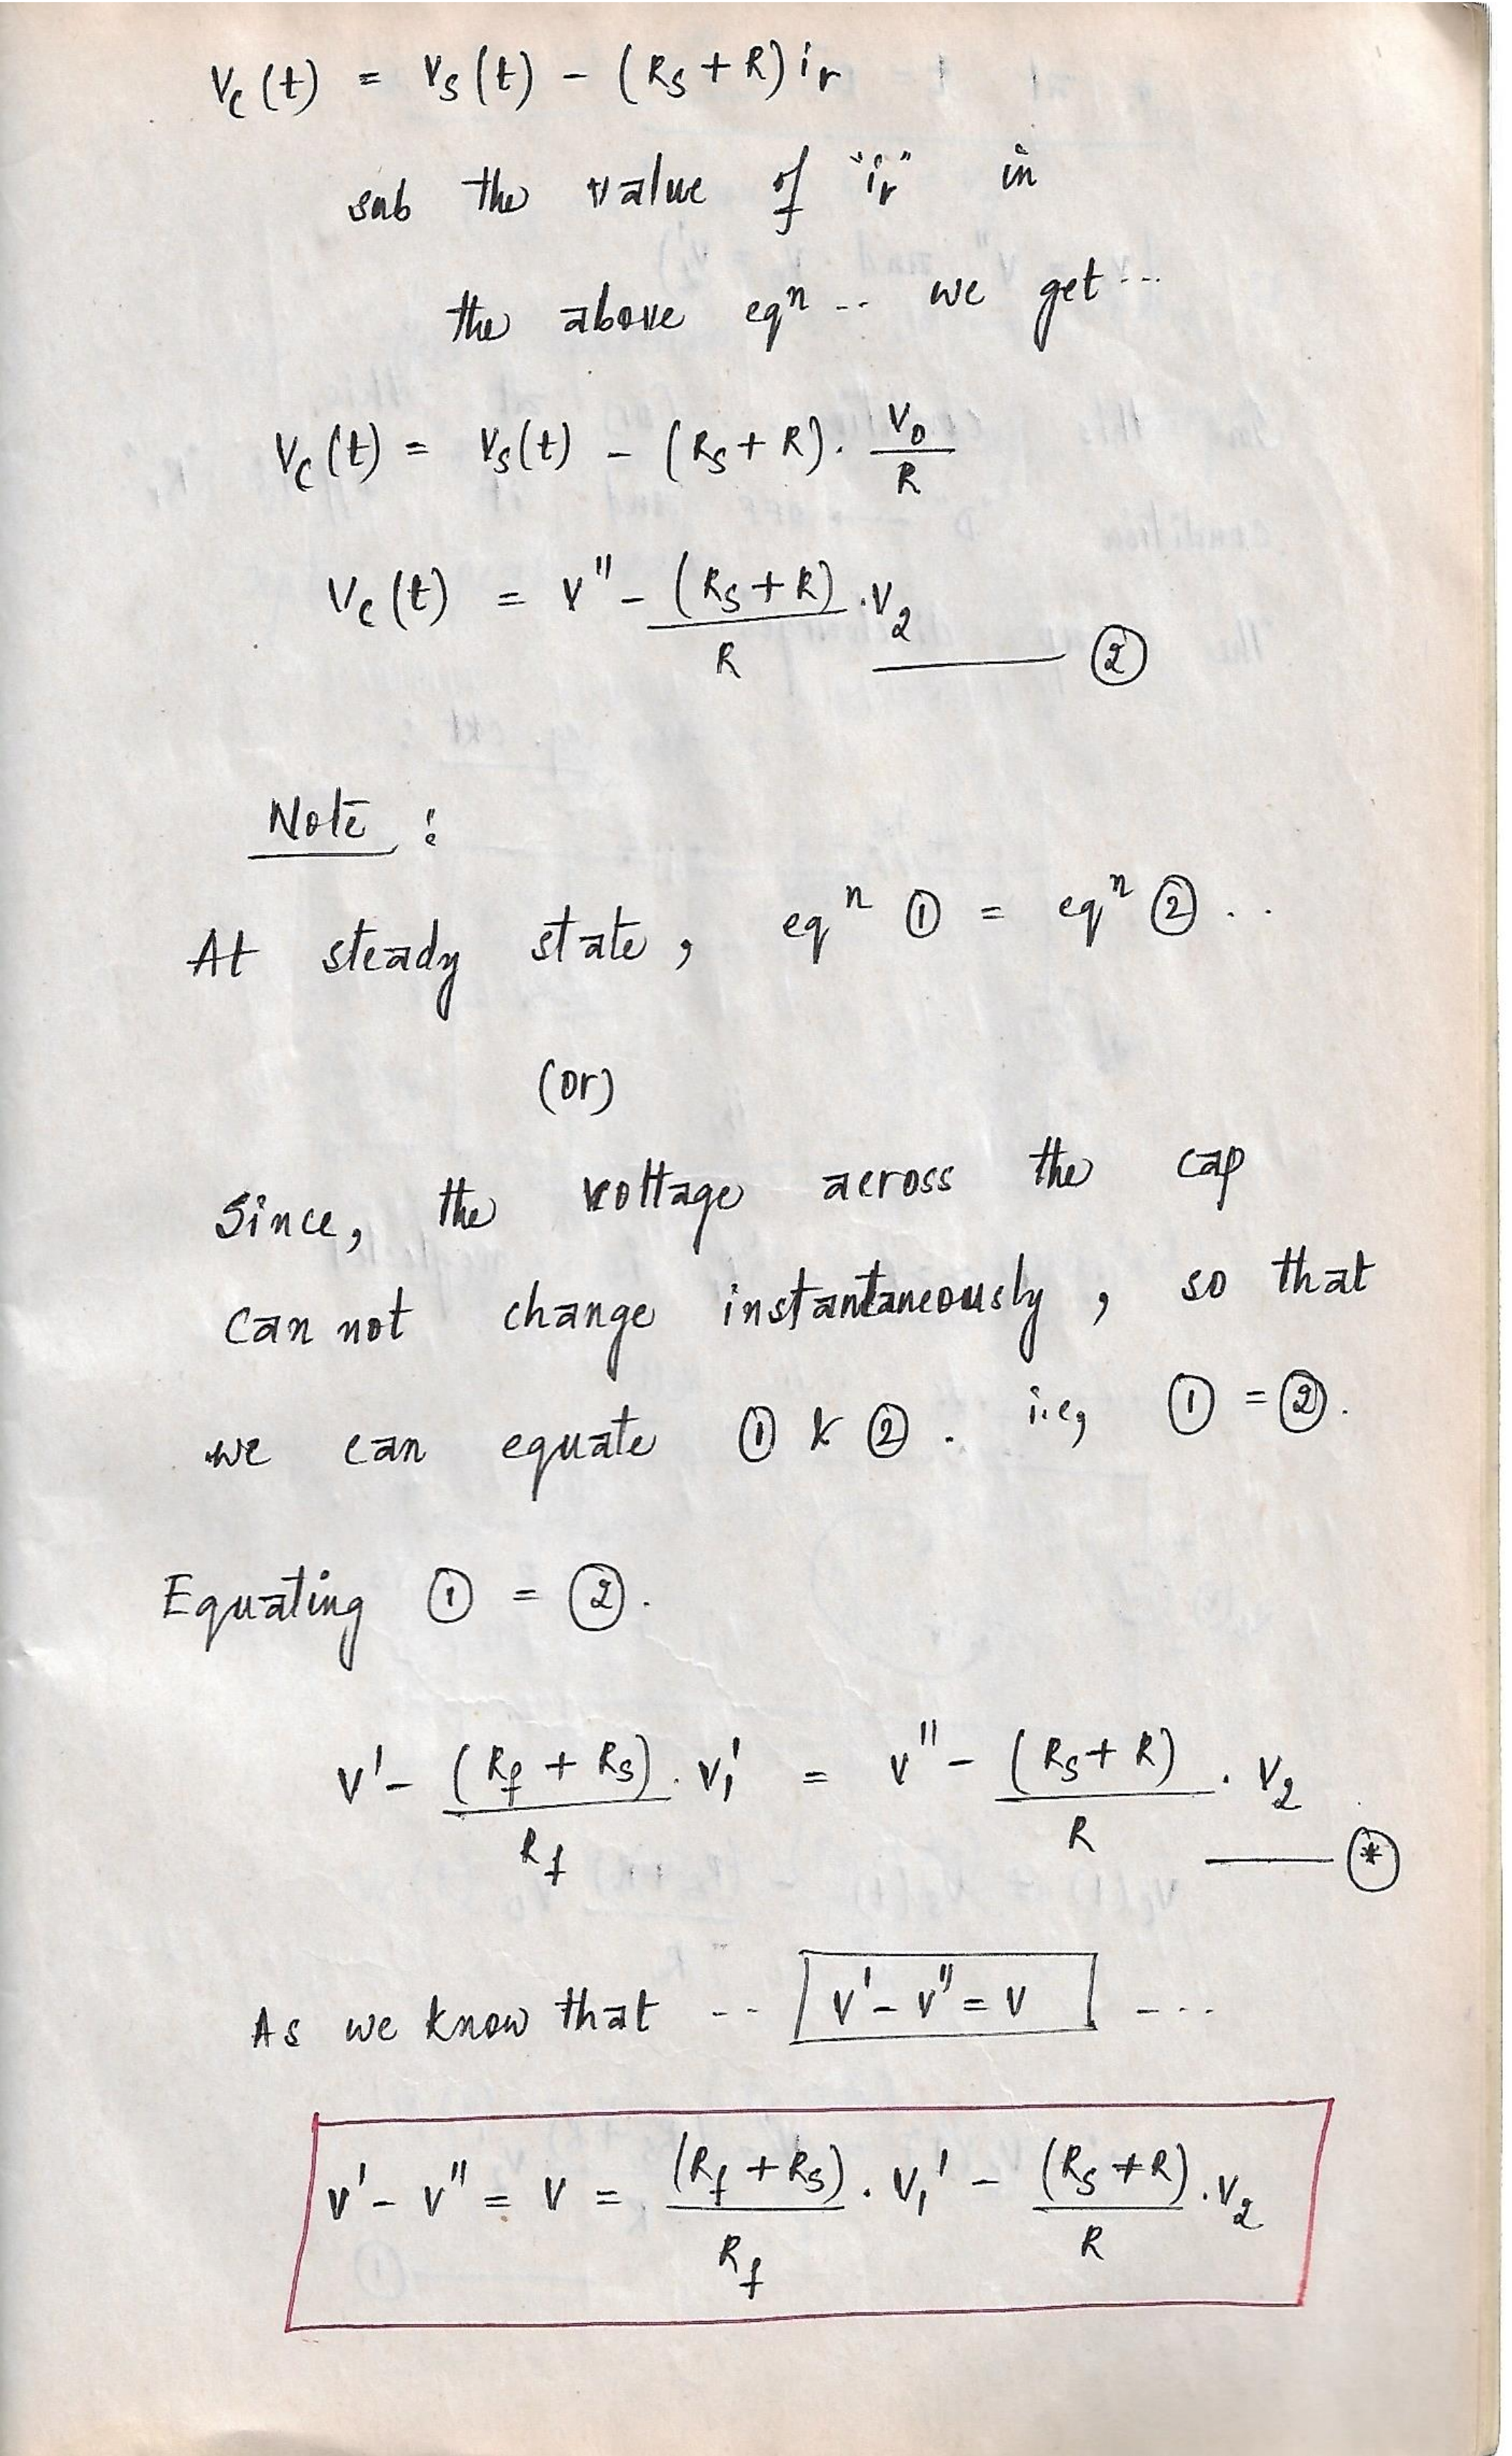 Vc(t) = Vs(t) - (Rs + R) ir
sub the value of "ir" in
the above eqⁿ .. we get ...
Vc(t) = Vs(t) - (Rs + R) . V0/R
Vc(t) = V'' - (Rs + R)/R . V2 —— ②
Note :
At steady state , eqⁿ ① = eqⁿ ② ..
(or)
Since, the voltage across the cap
can not change instantaneously , so that
we can equate ① & ② . i.e, ① = ② .
Equating ① = ② .
V' - (Rf + Rs)/Rf . V1' = V'' - (Rs + R)/R . V2 —— (*)
As we know that -- V' - V'' = V ---
V' - V'' = V = (Rf + Rs)/Rf . V1' - (Rs + R)/R . V2